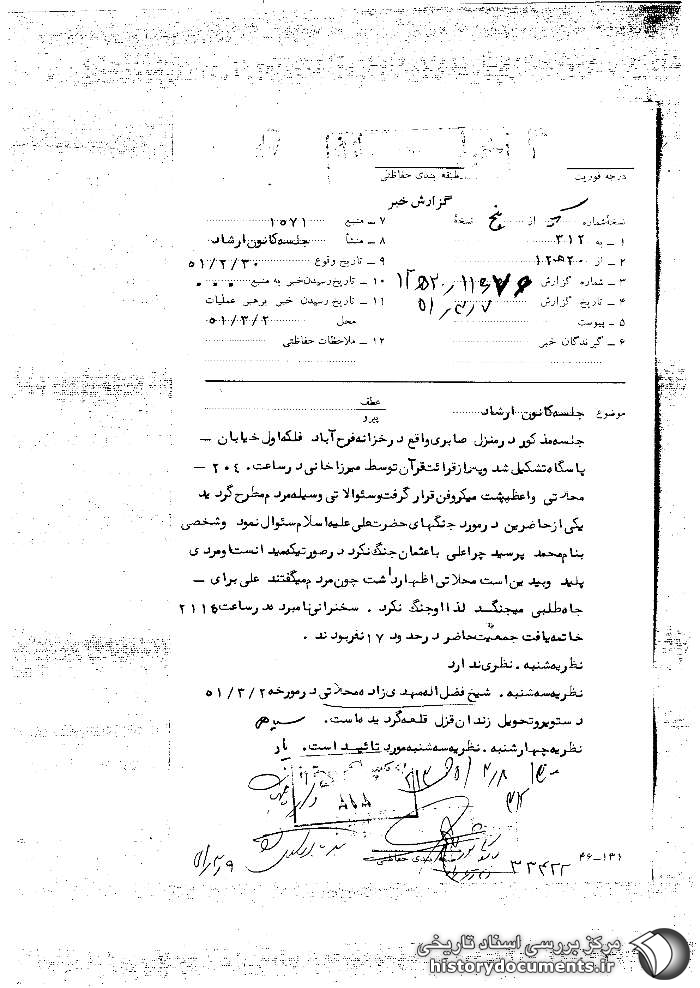 درجه فوریت
طبقه بندی حفاظتی
گزارش خبر
نسخه شماره یک از پنج نسخهٔ
۱ ـ به ۳۱۲
۲ ـ از ۱۲ ه ۲۰
۳ ـ شماره گزارش
۴ ـ تاریخ گزارش ۵۱٫۳٫۷
۵ ـ پیوست
۶ ـ گیرندگان خبر
۷ ـ منبع ۱۵۷۱
۸ ـ منشأ جلسه کانون ارشاد
۹ ـ تاریخ وقوع ۵۱/۲/۳۰
۱۰ ـ تاریخ رسیدن خبر به منبع
۱۱ ـ تاریخ رسیدن خبر برهبر عملیات
محل ۵۱/۳/۲
۱۲ ـ ملاحظات حفاظتی
موضوع جلسه کانون ارشاد
عطف
پیرو
جلسه مذکور در منزل صابری واقع در خزانه فرح آباد فلکه اول خیابان ـ
پاسگاه تشکیل شد و پس از قرائت قرآن توسط میرزاخانی در ساعت ۲۰۴۰ ـ
محلاتی واعظ پشت میکروفن قرار گرفت و سئوالاتی وسیله مردم مطرح گردید
یکی از حاضرین در مورد جنگهای حضرت علی علیه اسلام سئوال نمود و شخصی
بنام محمد پرسید چرا علی با عثمان جنگ نکرد در صورتیکه میدانست او مردی
پلید و بیدین است محلاتی اظهار داشت چون مردم میگفتند علی برای ـ
جاه طلبی میجنگد لذا او جنگ نکرد . سخنرانی نامبرده در ساعت ۲۱۱۵
خاتمه یافت جمعیت حاضر در حدود ۱۷ نفر بودند .
نظریه شنبه . نظری ندارد
نظریه سه شنبه . شیخ فضل اله مهدی زاده محلاتی در مورخه ۵۱/۳/۲
دستگیر و تحویل زندان قزل قلعه گردیده است . سپاهی
نظریه چهارشنبه . نظریه سه شنبه مورد تائید است . یار
۳/۸
۸۱۸
طبقه بندی حفاظتی
۳۳۴۲۲
۴۶-۱۳۱
مرکز بررسی اسناد تاریخی
historydocuments.ir